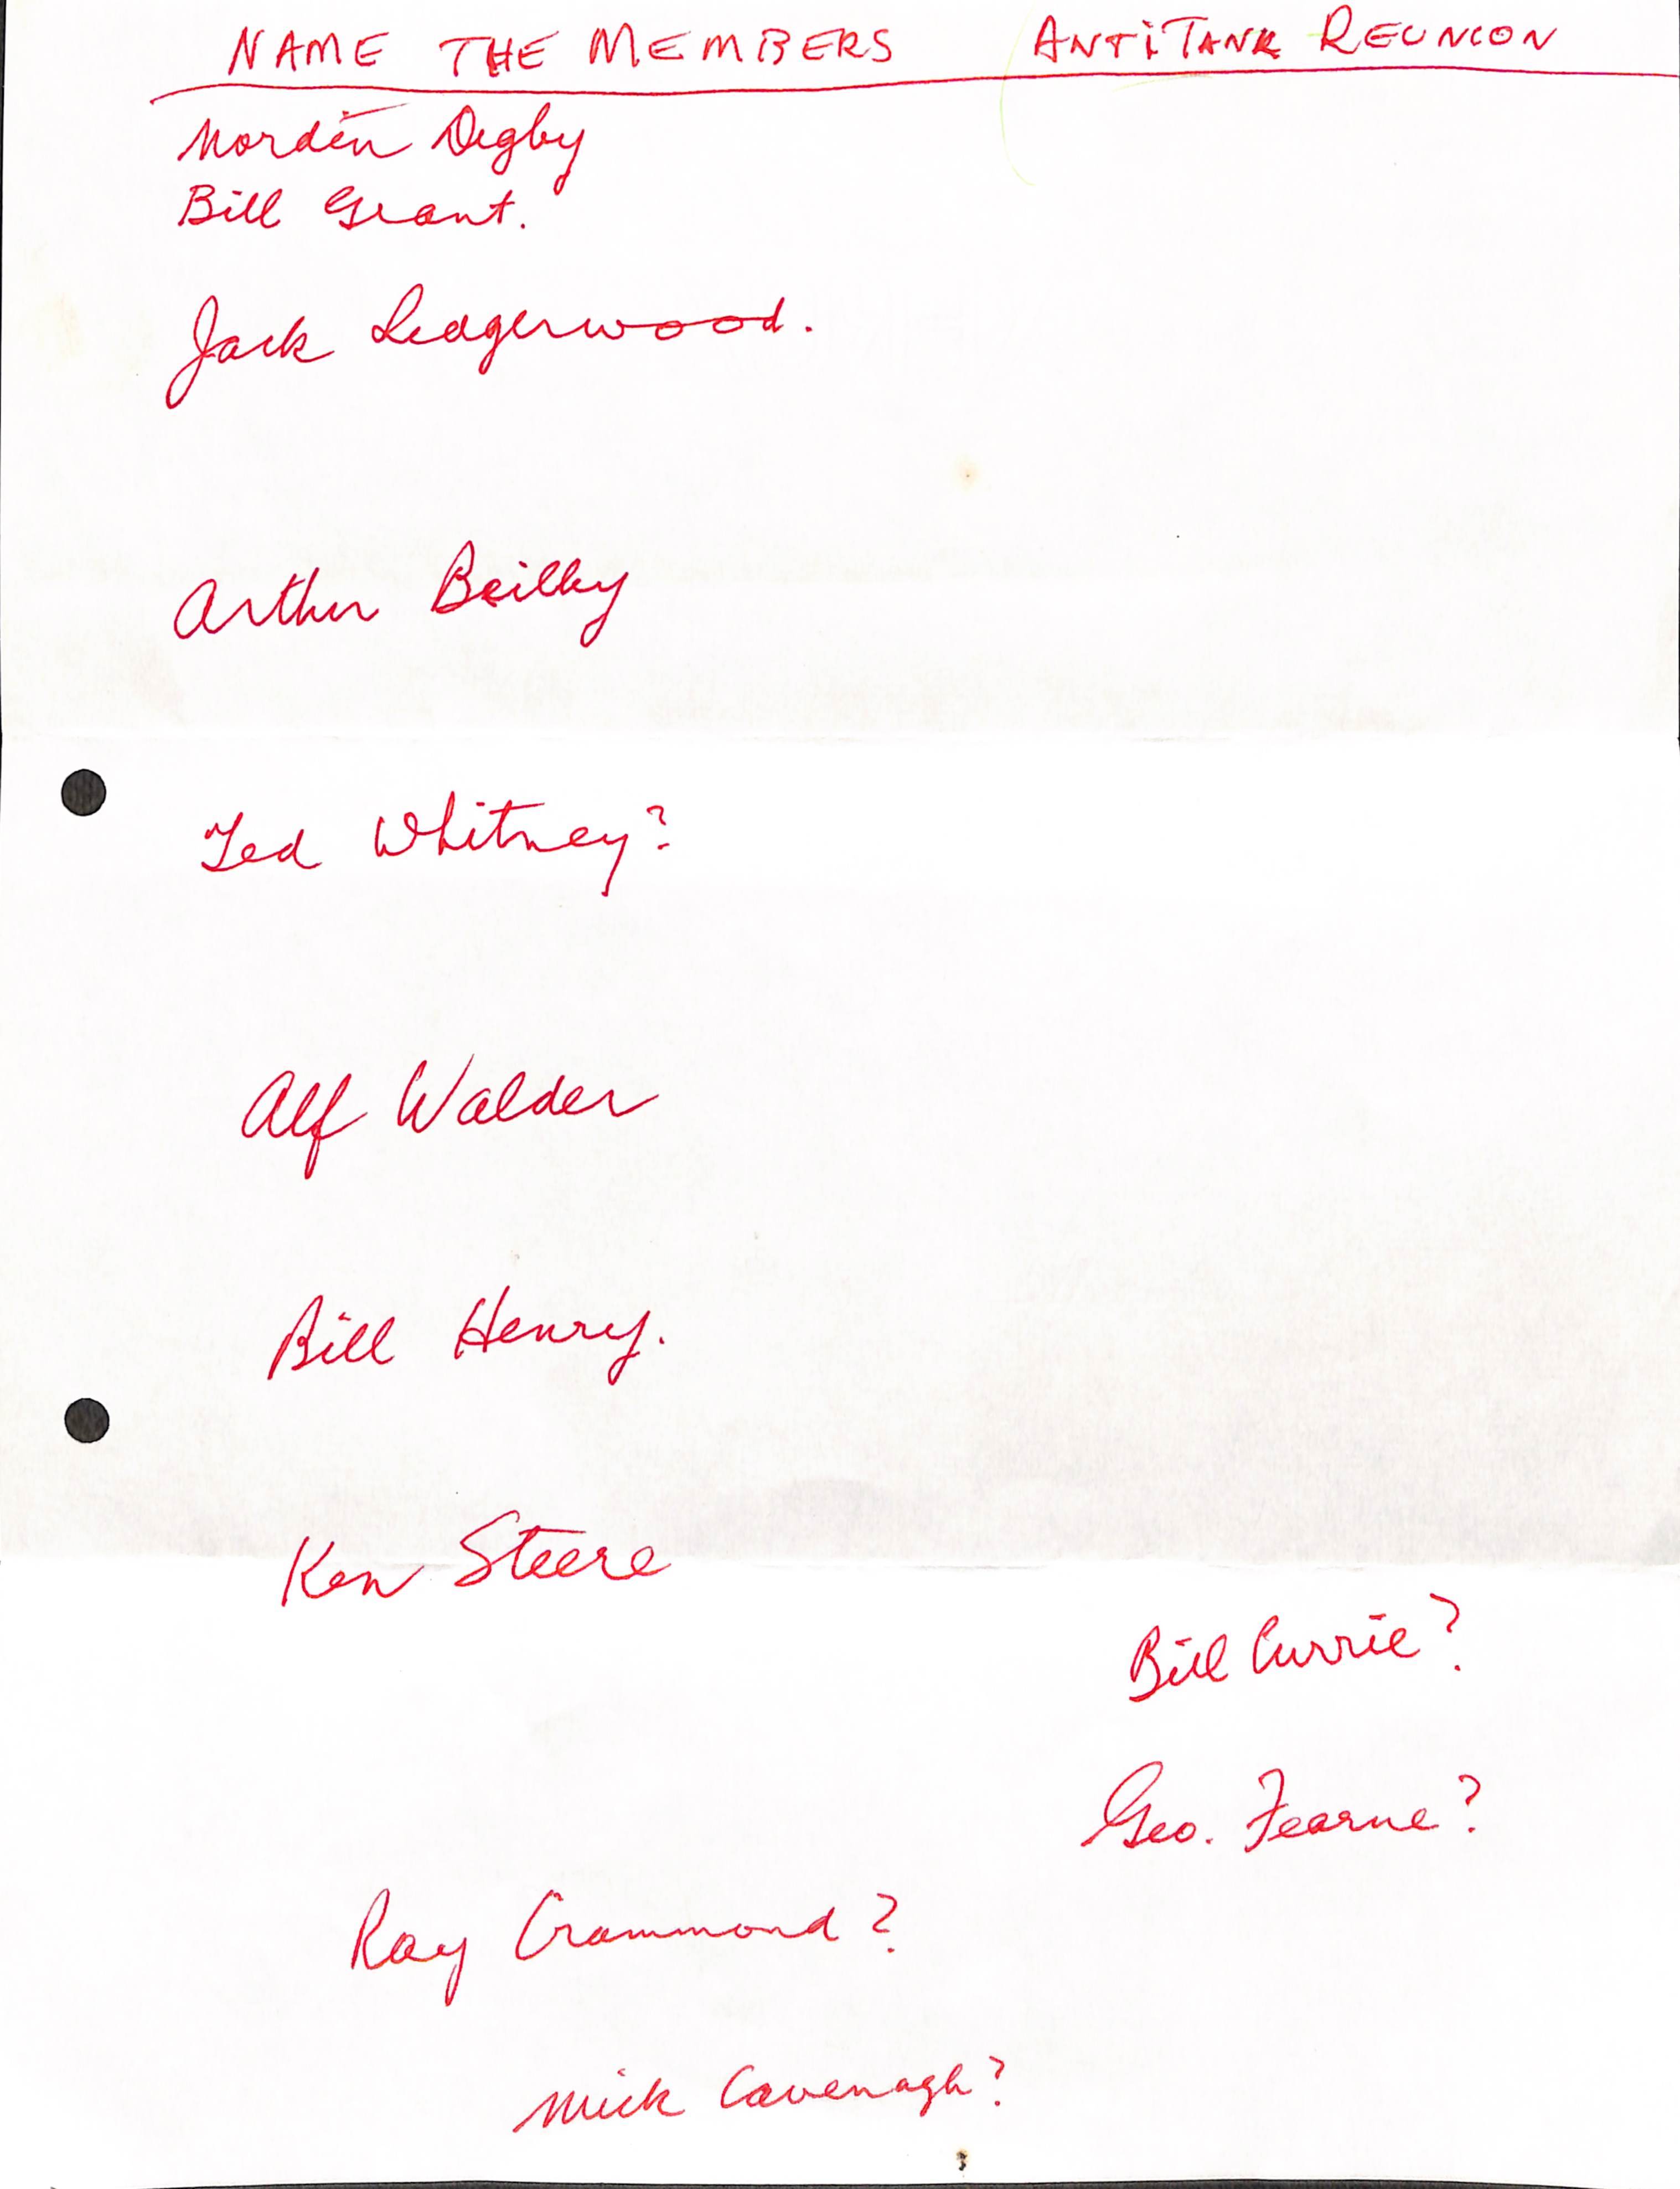 NAME THE MEMBERS ANTiTANK REUNION
Norden Digby
Bill Grant.
Jack Ledgerwood.
Arthur Beilby
Ted Whitney?
Alf Walder
Bill Henry.
Ken Steere
Bill Currie?
Geo. Fearne?
Ray Crammond?
Mick Cavenagh?